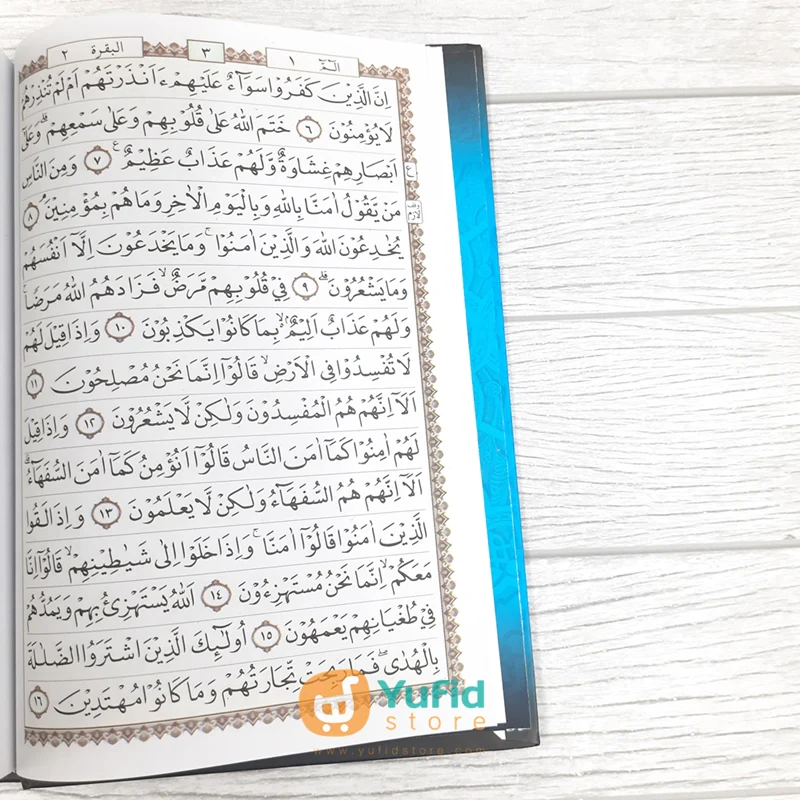 البقرة ٢ ٣ الۤمّۤ ١
اِنَّ الَّذِيْنَ كَفَرُوْا سَوَاۤءٌ عَلَيْهِمْ ءَاَنْذَرْتَهُمْ اَمْ لَمْ تُنْذِرْهُمْ
لَا يُؤْمِنُوْنَ ٦ خَتَمَ اللّٰهُ عَلٰى قُلُوْبِهِمْ وَعَلٰى سَمْعِهِمْۗ وَعَلٰٓى
اَبْصَارِهِمْ غِشَاوَةٌ وَّلَهُمْ عَذَابٌ عَظِيْمٌ ࣖ ٧ وَمِنَ النَّاسِ
ع
مَنْ يَّقُوْلُ اٰمَنَّا بِاللّٰهِ وَبِالْيَوْمِ الْاٰخِرِ وَمَا هُمْ بِمُؤْمِنِيْنَۘ ٨
وقف لازم
يُخٰدِعُوْنَ اللّٰهَ وَالَّذِيْنَ اٰمَنُوْاۚ وَمَا يَخْدَعُوْنَ اِلَّآ اَنْفُسَهُمْ
وَمَا يَشْعُرُوْنَۗ ٩ فِيْ قُلُوْبِهِمْ مَّرَضٌۙ فَزَادَهُمُ اللّٰهُ مَرَضًاۚ
وَلَهُمْ عَذَابٌ اَلِيْمٌۢ ەۙ بِمَا كَانُوْا يَكْذِبُوْنَ ١٠ وَاِذَا قِيْلَ لَهُمْ
لَا تُفْسِدُوْا فِى الْاَرْضِۙ قَالُوْٓا اِنَّمَا نَحْنُ مُصْلِحُوْنَ ١١
اَلَآ اِنَّهُمْ هُمُ الْمُفْسِدُوْنَ وَلٰكِنْ لَّا يَشْعُرُوْنَ ١٢ وَاِذَا قِيْلَ
لَهُمْ اٰمِنُوْا كَمَآ اٰمَنَ النَّاسُ قَالُوْٓا اَنُؤْمِنُ كَمَآ اٰمَنَ السُّفَهَاۤءُۗ
اَلَآ اِنَّهُمْ هُمُ السُّفَهَاۤءُ وَلٰكِنْ لَّا يَعْلَمُوْنَ ١٣ وَاِذَا لَقُوا
الَّذِيْنَ اٰمَنُوْا قَالُوْٓا اٰمَنَّاۚ وَاِذَا خَلَوْا اِلٰى شَيٰطِيْنِهِمْۙ قَالُوْٓا اِنَّا
مَعَكُمْۙ اِنَّمَا نَحْنُ مُسْتَهْزِءُوْنَ ١٤ اَللّٰهُ يَسْتَهْزِئُ بِهِمْ وَيَمُدُّهُمْ
فِيْ طُغْيَانِهِمْ يَعْمَهُوْنَ ١٥ اُولٰۤىِٕكَ الَّذِيْنَ اشْتَرَوُا الضَّلٰلَةَ
بِالْهُدٰىۖ فَمَا رَبِحَتْ تِّجَارَتُهُمْ وَمَا كَانُوْا مُهْتَدِيْنَ ١٦
Yufid
store
www.yufidstore.com